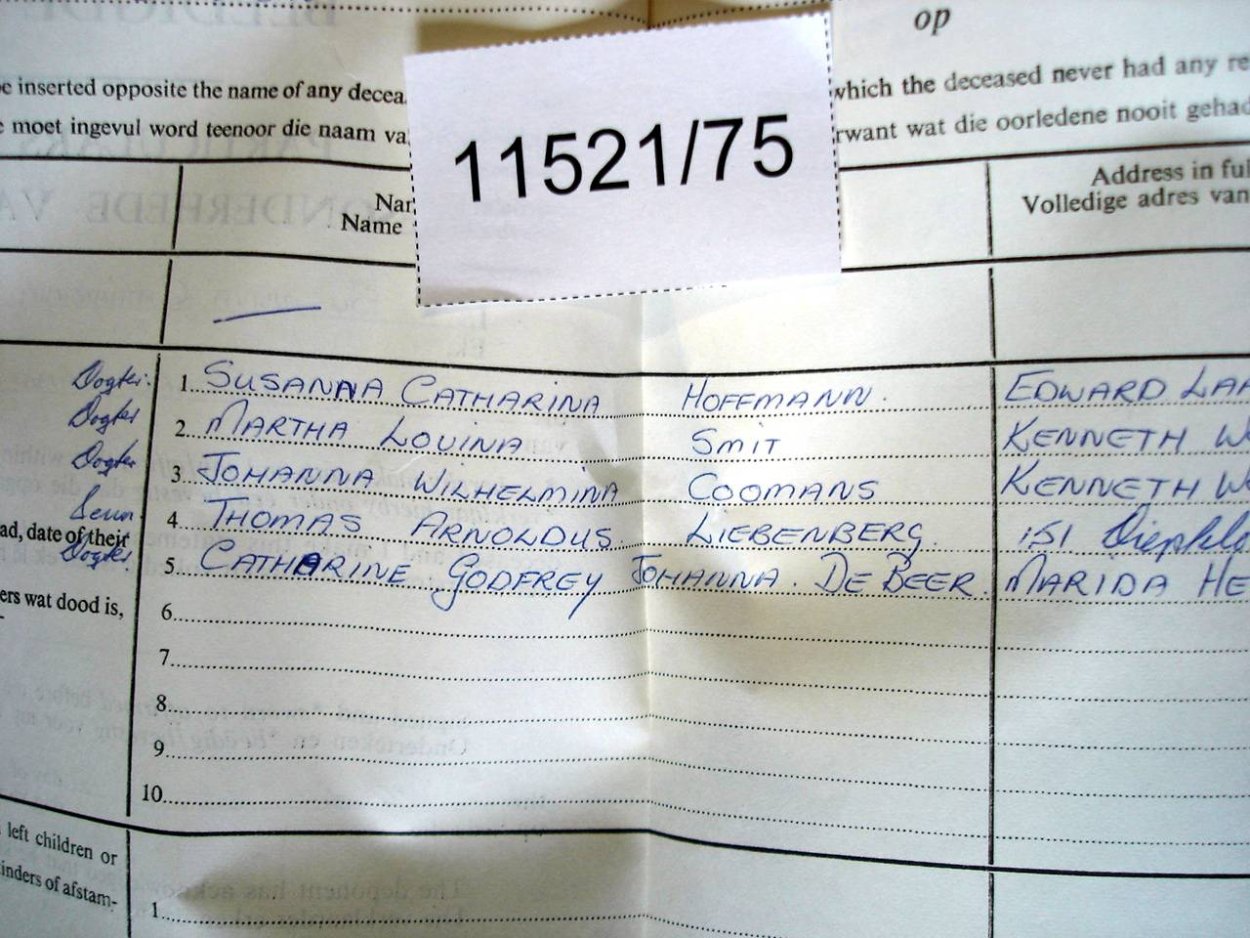 op
e inserted opposite the name of any decea
which the deceased never had any re
e moet ingevul word teenoor die naam va
rwant wat die oorledene nooit gehad
11521/75
Nar
Name
Address in ful
Volledige adres van
Dogter. 1. SUSANNA CATHARINA HOFFMANN. EDWARD LAA
Dogter 2. MARTHA LOUINA SMIT KENNETH W
Dogter 3. JOHANNA WILHELMINA COOMANS KENNETH W
Seun 4. THOMAS ARNOLDUS. LIEBENBERG. 151
ad, date of their
Dogter. 5. CATHARINE GODFREY JOHANNA. DE BEER. MARIDA HE
ers wat dood is,
6.
7.
8.
9.
10.
left children or
inders of afstam-
1.